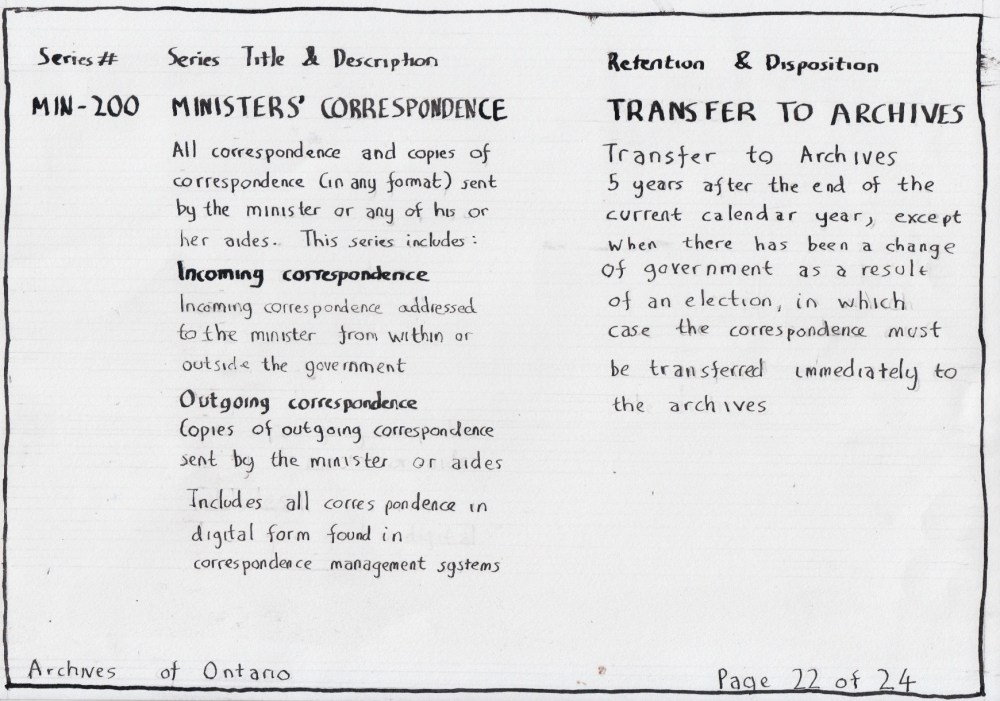 Series # Series Title & Description Retention & Disposition
MIN-200 MINISTERS' CORRESPONDENCE TRANSFER TO ARCHIVES
All correspondence and copies of
correspondence (in any format) sent
by the minister or any of his or
her aides. This series includes:
Incoming correspondence
Incoming correspondence addressed
to the minister from within or
outside the government
Outgoing correspondence
Copies of outgoing correspondence
sent by the minister or aides
Includes all correspondence in
digital form found in
correspondence management systems
Transfer to Archives
5 years after the end of the
current calendar year, except
when there has been a change
of government as a result
of an election, in which
case the correspondence must
be transferred immediately to
the archives
Archives of Ontario Page 22 of 24